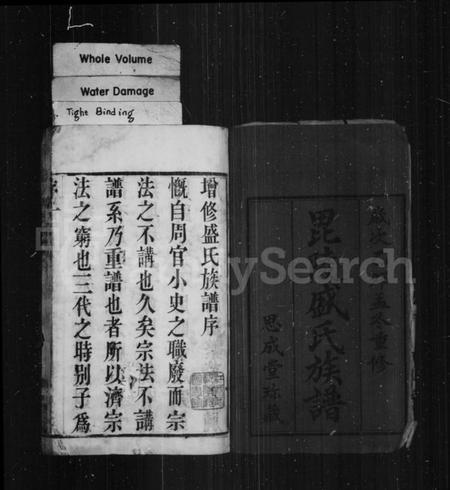 Whole Volume
Water Damage
Tight Binding
歲次
重修
毘陵盛氏族譜
思成堂珍藏
增修盛氏族譜序
慨自周官小史之職廢而宗
法之不講也久矣宗法不講
譜系乃重譜也者所以濟宗
法之窮也三代之時别子爲
Search